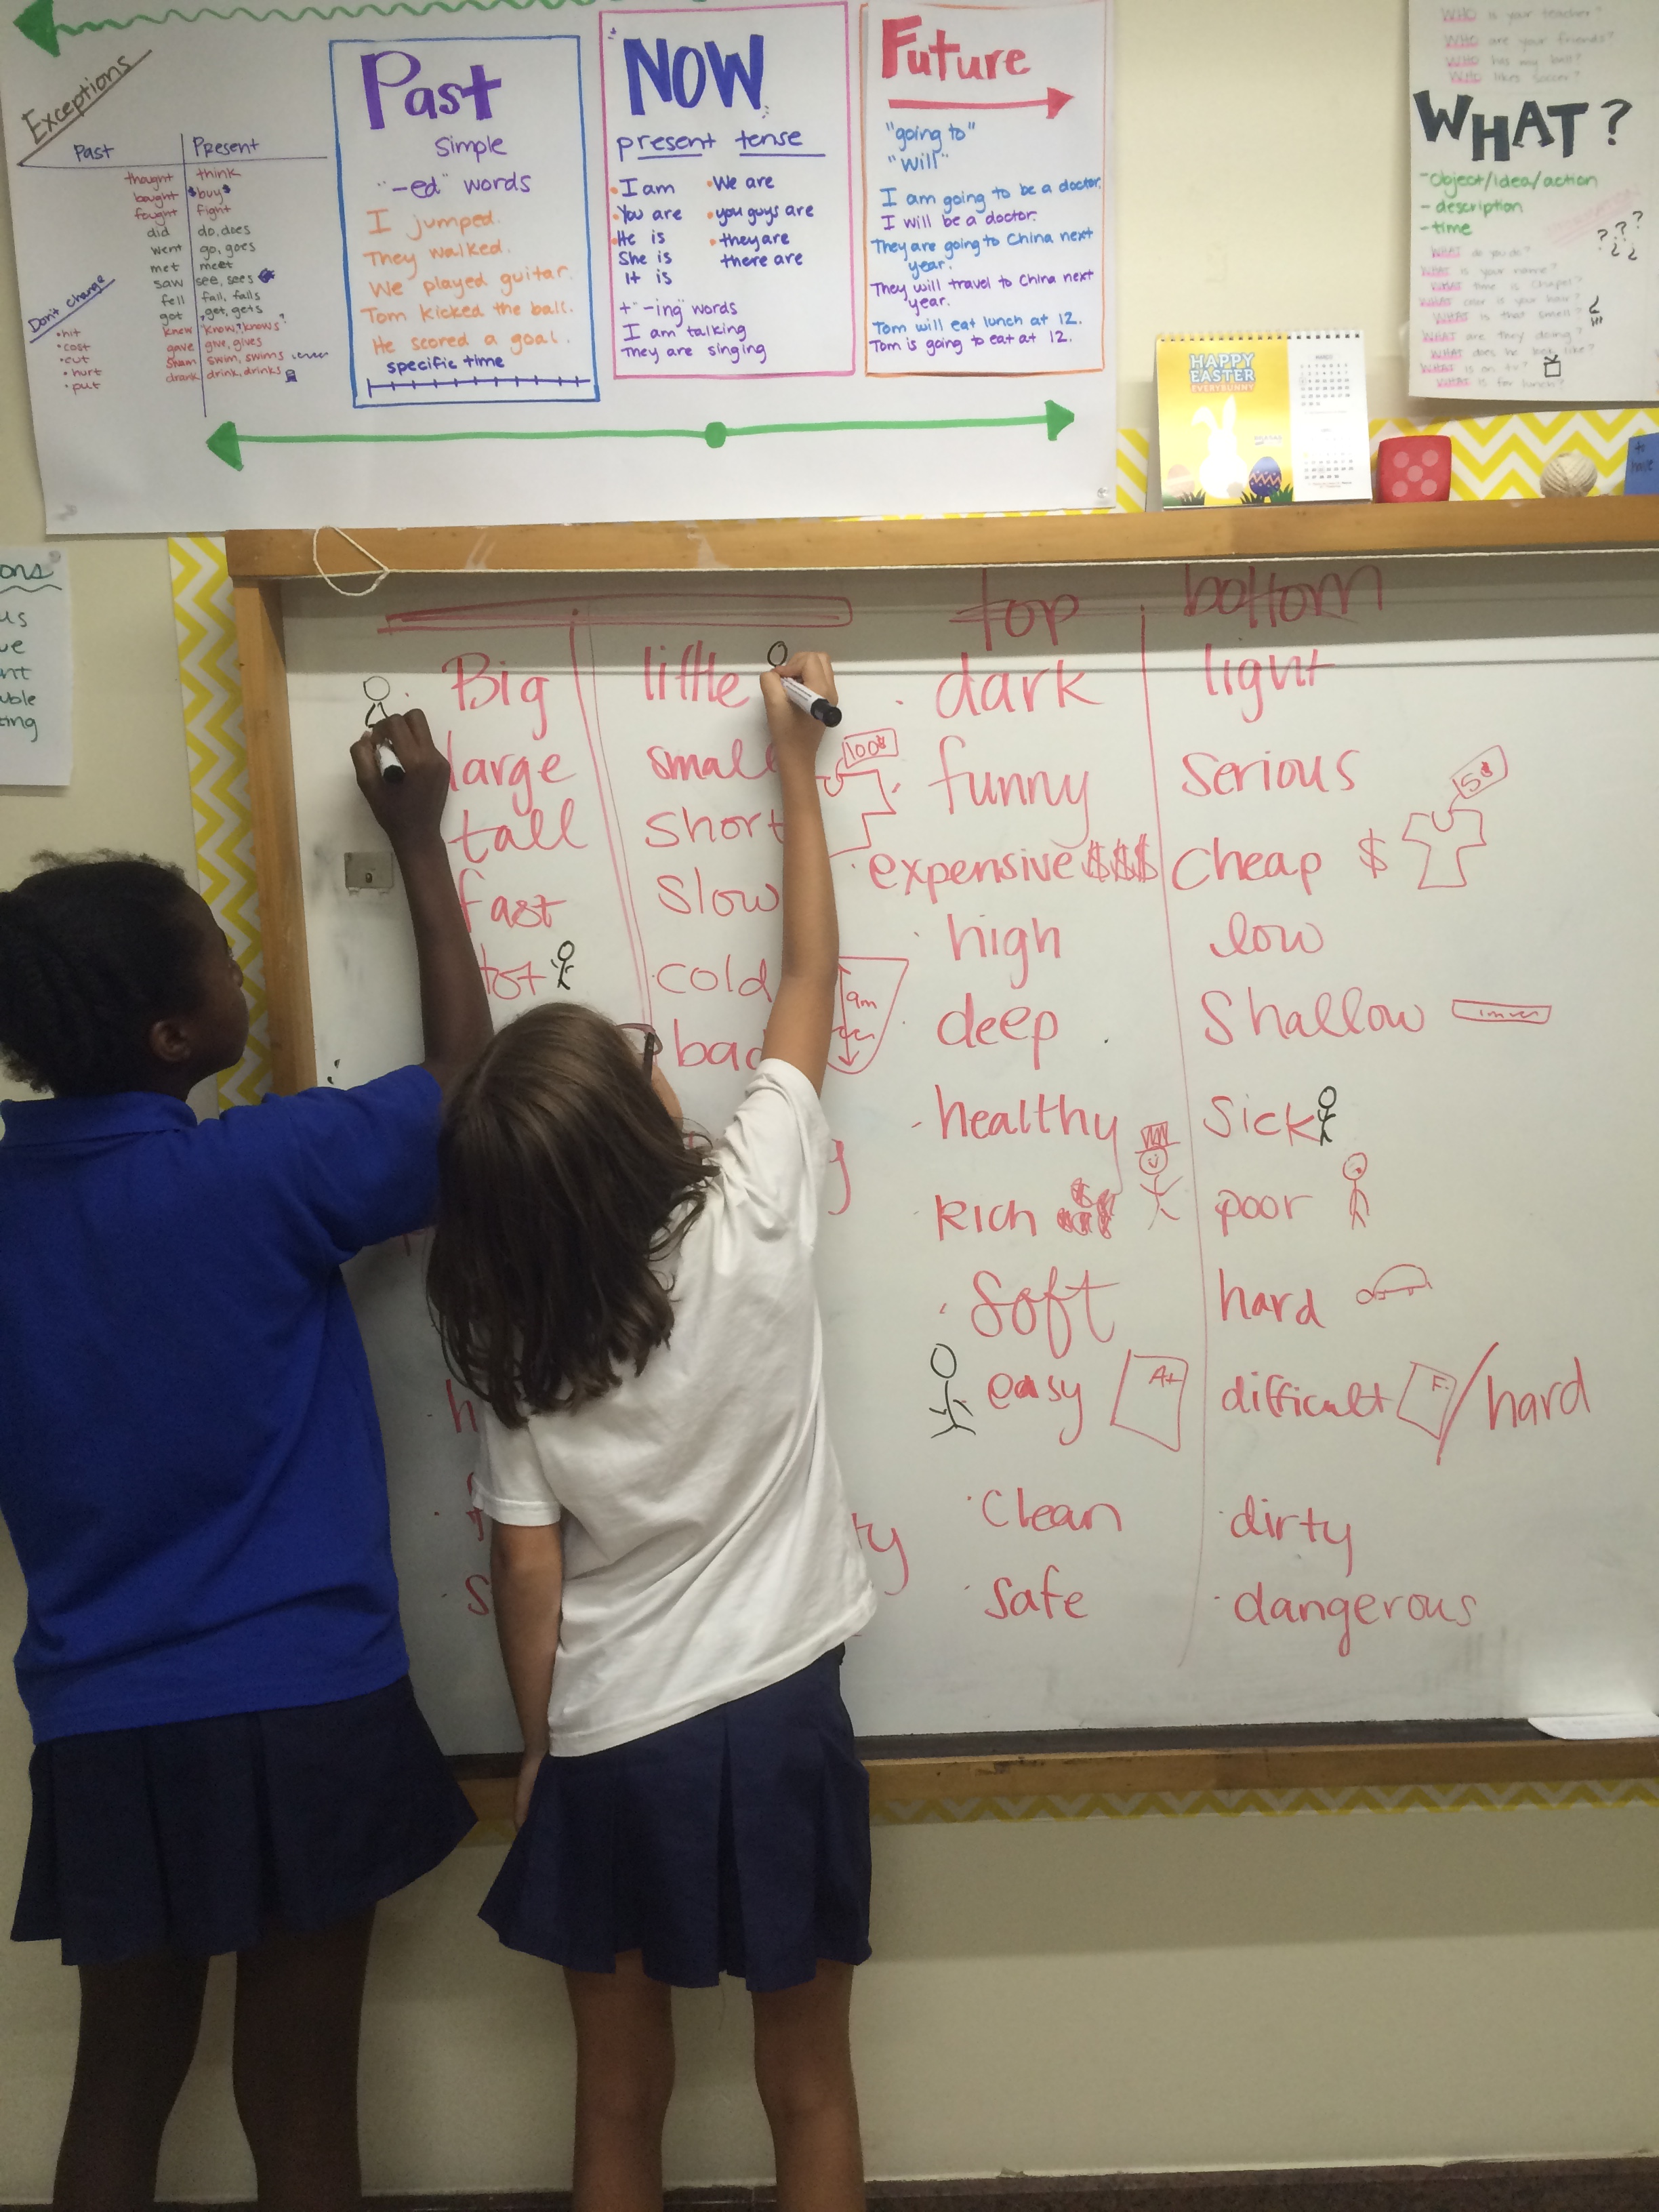 Exceptions
Past Present
thought think
bought $buy$
fought fight
did do, does
went go, goes
met meet
saw see, sees
fell fall, falls
got get, gets
knew know, knows
gave give, gives
swam swim, swims
drank drink, drinks
Don't change
•hit
•cost
•cut
•hurt
•put
Past
Simple
"-ed" words
I jumped.
They walked.
We played guitar.
Tom kicked the ball.
He scored a goal.
specific time
NOW
present tense
•I am •We are
•You are •you guys are
•He is •they are
She is there are
It is
+"-ing" words
I am talking
They are singing
Future
"going to"
"will"
I am going to be a doctor.
I will be a doctor.
They are going to China next
year.
They will travel to China next
year.
Tom will eat lunch at 12.
Tom is going to eat at 12.
WHO is your teacher?
WHO are your friends?
WHO has my ball?
WHO likes soccer?
WHAT?
-object/idea/action
- description
-time
???
¿¿
WHAT do you do?
WHAT is your name?
WHAT time is Chapel?
WHAT color is your hair?
WHAT is that smell?
WHAT are they doing?
WHAT does he look like?
WHAT is on tv?
WHAT is for lunch?
HAPPY
EASTER
EVERYBUNNY
to
have
ons
us
ve
nt
uble
ting
top bottom
Big little dark light
large small 100$ funny serious 5$
tall short expensive $$$ Cheap $
fast slow high low
hot cold 9m deep Shallow
bad
healthy Sick
Rich poor
Soft hard
easy A+ difficult F /hard
Clean dirty
ty
Safe dangerous